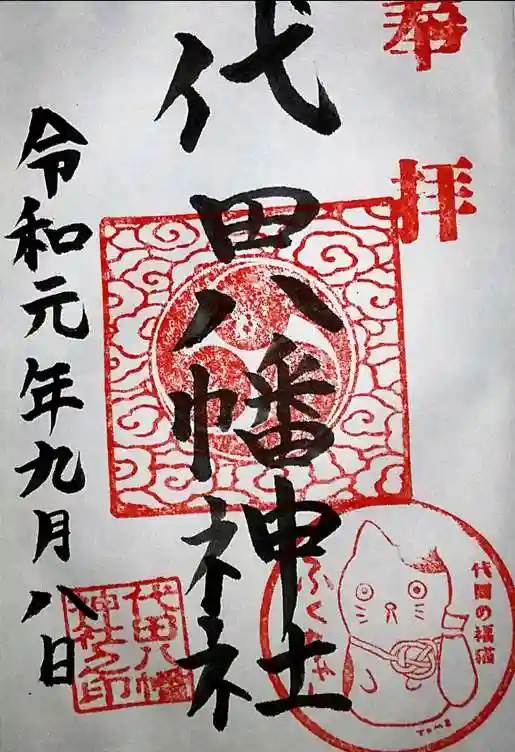 奉拝
代田八幡神社
令和元年九月八日
代田八幡
神社之印
代田の福猫
TOMO